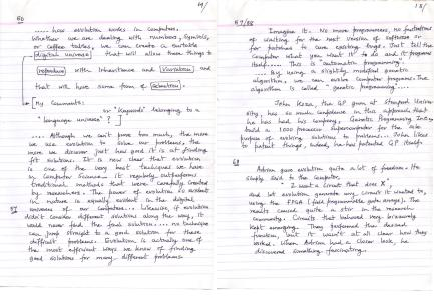 50
..... how evolution works in computers.
Whether we are dealing with numbers, symbols,
or coffee tables, we can create a suitable
digital universe that will allow these things to
reproduce with inheritance and variation and
that will have some form of selection.
My Comments:
or "keywords" belonging to a
"language universe"?
..... Although we can't prove too much, the more
we use evolution to solve our problems, the
more we discover just how good it is at finding
fit solutions. It is now clear that evolution
is one of the very best techniques we have
in Computer Science. It regularly outperforms
traditional methods that were carefully created
by researchers. The power of evolution so evident
in nature is equally evident in the digital
universe of our computers.... Likewise if evolution
didn't consider different solutions along the way, it
would never find the final solution.... no technique
can jump straight to a good solution for these
difficult problems. Evolution is actually one of
the most efficient ways we know of finding
good solutions for many different problems.
57/58
Imagine it. No more programmers, no frustrations
of waiting for the next version of software or
for patches to cure existing bugs. Just tell the
Computer what you want it to do and it programs
itself..... This is automatic programming.
.... By using a slightly modified genetic
algorithm, we can evolve computer programs. The
algorithm is called "genetic programming"...
John Koza, the GP guru at Stanford Univer-
sity, has so much confidence in this approach that
he has had his company, Genetic Programming Inc,
build a 1000 processor supercomputer for the sole
purpose of evolving solutions to problems. John likes
to patent things, indeed, he has patented GP itself.
Adrian gave evolution quite a lot of freedom. He
simply said to the computer,
"I want a circuit that does X",
and let evolution generate any circuit it wanted to,
using the FPGA (field programmable gate arrays). The
results caused quite a stir in the research
community. Circuits that behaved very bizarrely
kept emerging. They performed the desired
function, but it wasn't at all clear how they
worked. When Adrian had a closer look, he
discovered something fascinating.